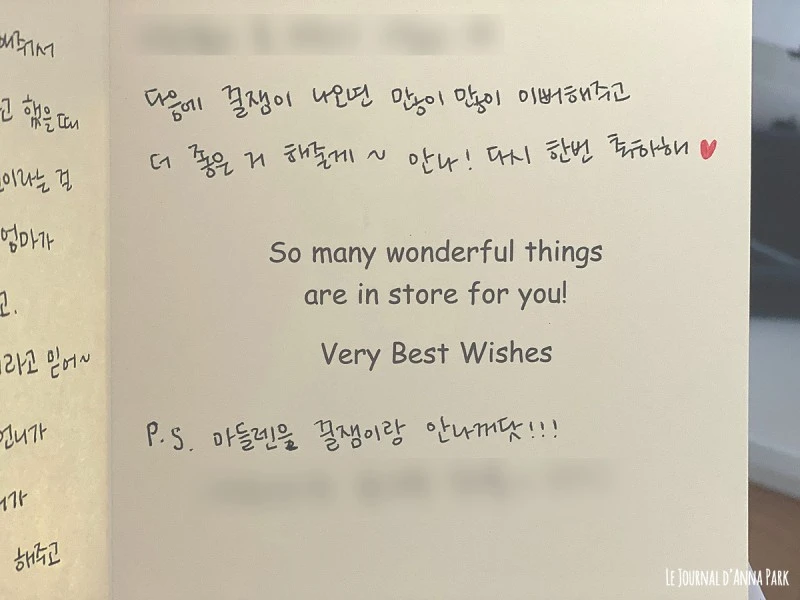 해줘서
고 했을 때
이라는 걸
엄마가
고.
라고 믿어~
언니가
가
해주고
다음에 꿀잼이 나오면 많이 많이 이뻐해주고
더 좋은 거 해줄게 ~ 안나! 다시 한번 축하해 ♥
So many wonderful things
are in store for you!
Very Best Wishes
P.S. 마들렌은 꿀잼이랑 안나꺼닷!!!
LE JOURNAL D'ANNA PARK